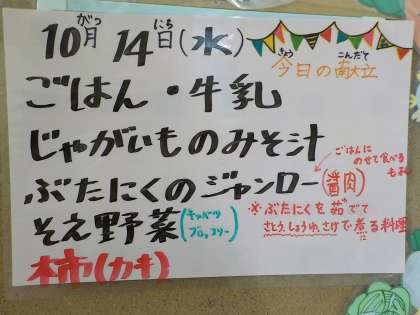 10月 14日(水)
がつ にち
きょう こんだて
今日の献立
ごはん・牛乳
じゃがいものみそ汁
ぶたにくのジャンロー(醤肉)
ごはんに
のせて食べる
もよし
そえ野菜(キャベツ
ブロッコリー)
※ぶたにくを茹でて
さとう、しょうゆ、さけで煮る料理
柿(カキ)